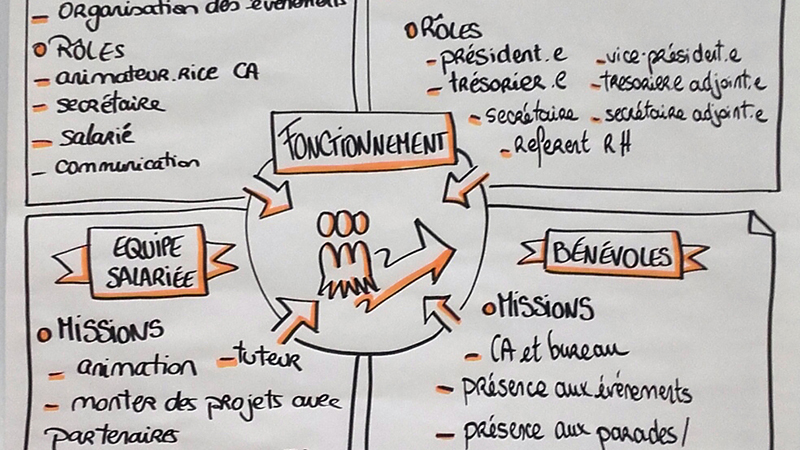 - ORGANISATION DES ÉVÉNEMENTS
RÔLES
- animateur.rice CA
- secrétaire
- salarié
- communication
RÔLES
- président.e - vice-président.e
- trésorier.e - trésorier.e adjoint.e
- secrétaire - secrétaire adjoint.e
- Referent RH
FONCTIONNEMENT
EQUIPE
SALARIÉE
MISSIONS
- animation - tuteur
- monter des projets avec
partenaires
BÉNÉVOLES
MISSIONS
- CA et bureau
- présence aux événements
- présence aux parades/